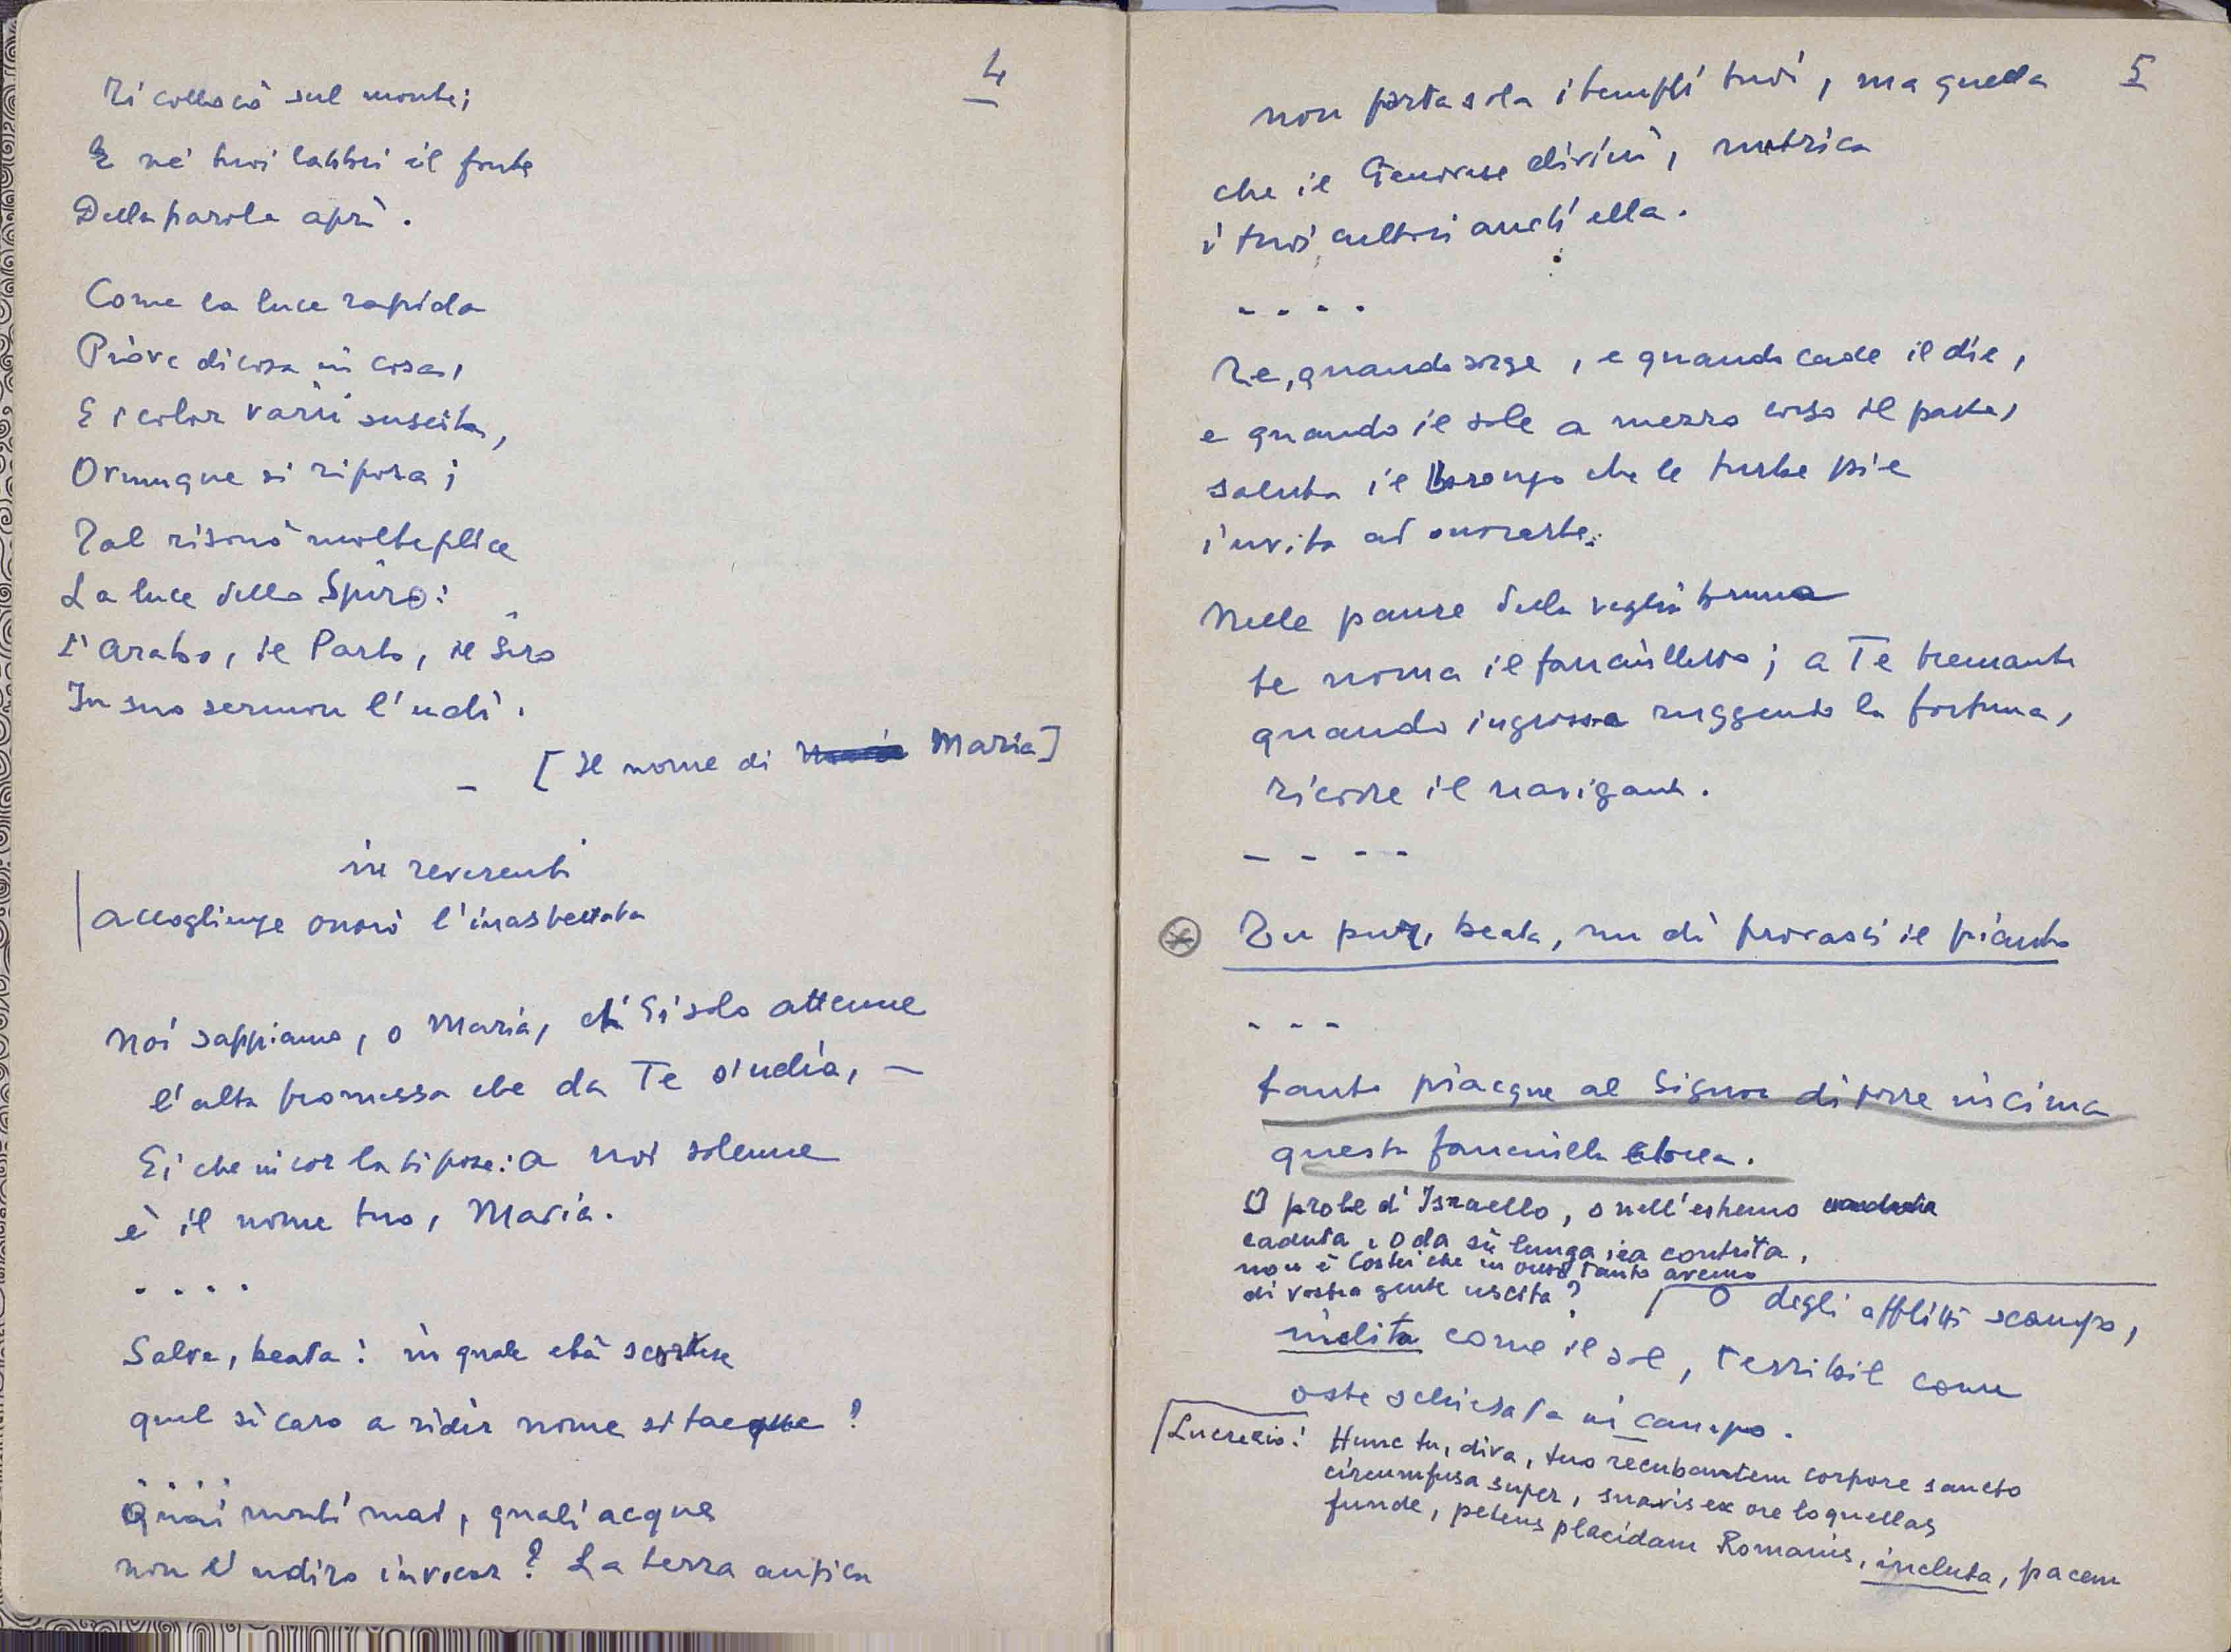 4
Ti collocò sul monte;
E ne' tuoi labbri il fonte
Della parola aprì.
Come la luce rapida
Piove di cosa in cosa,
E i color varii suscita,
Ovunque si riposa;
Tal risonò molteplice
La voce dello Spiro:
L'Arabo, il Parto, il Siro
In suo sermon l'udì.
- [Il nome di Maria]
in reverenti
accoglienze onorò l'inaspettata
Noi sappiamo, o Maria, ch'Ei solo attenne
l'alta promessa che da Te s'udìa, –
Ei che in cor la ti pose: a noi solenne
è il nome tuo, Maria.
. . . .
Salve, beata: in quale età scortese
quel sì caro a ridir nome si tacque?
. . . .
Quai monti mai, quali acque
non l'udiro invocar? La terra antica
5
non porta sola i templi tuoi, ma quella
che il Genovese divinò, nutrica
i tuoi cultori anch'ella.
- - - -
Te, quando sorge, e quando cade il die,
e quando il sole a mezzo corso il parte,
saluta il bronzo che le turbe pie
invita ad onorarte.
Nelle paure della veglia bruna
te noma il fanciulletto; a Te tremante
quando ingrossa ruggendo la fortuna,
ricorre il navigante.
- - - -
Tu pur, beata, un dì provasti il pianto
- - -
tanto piacque al Signor di porre in cima
questa fanciulla ebrea.
O prole d'Israello, o nell'estremo
caduta, o da sì lunga ira contrita,
non è Costei che in onor tanto avemo
di vostra gente uscita?
O degli afflitti scampo,
inclita come il sol, terribil come
oste schierata in campo.
Lucrezio: Hunc tu, diva, tuo recubantem corpore sancto
circumfusa super, suavis ex ore loquellas
funde, petens placidam Romanis, incluta, pacem